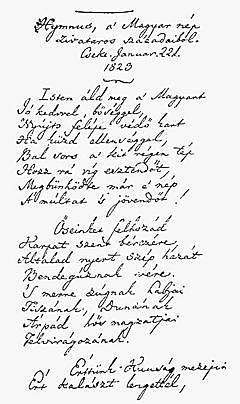 Hymnus, a' Magyar nép
zivataros századaiból.
Cseke. Januar. 22d.
1823
Isten áldd meg a' Magyart
Jó kedvvel, bőséggel,
Nyújts feléje védő kart
Ha küzd ellenséggel,
Bal sors a' kit régen tép
Hozz rá víg esztendőt,
Megbűnhödte már e' nép
A' múltat 's jövendőt!
Őseinket felhozád
Kárpát szent bérczére,
Általad nyert szép hazát
Bendegúznak vére.
'S merre zúgnak habjai
Tiszának, Dunának
Árpád hős magzatjai
Felvirágozának.
Értünk Kunság mezején
Ért kalászt lengettél,